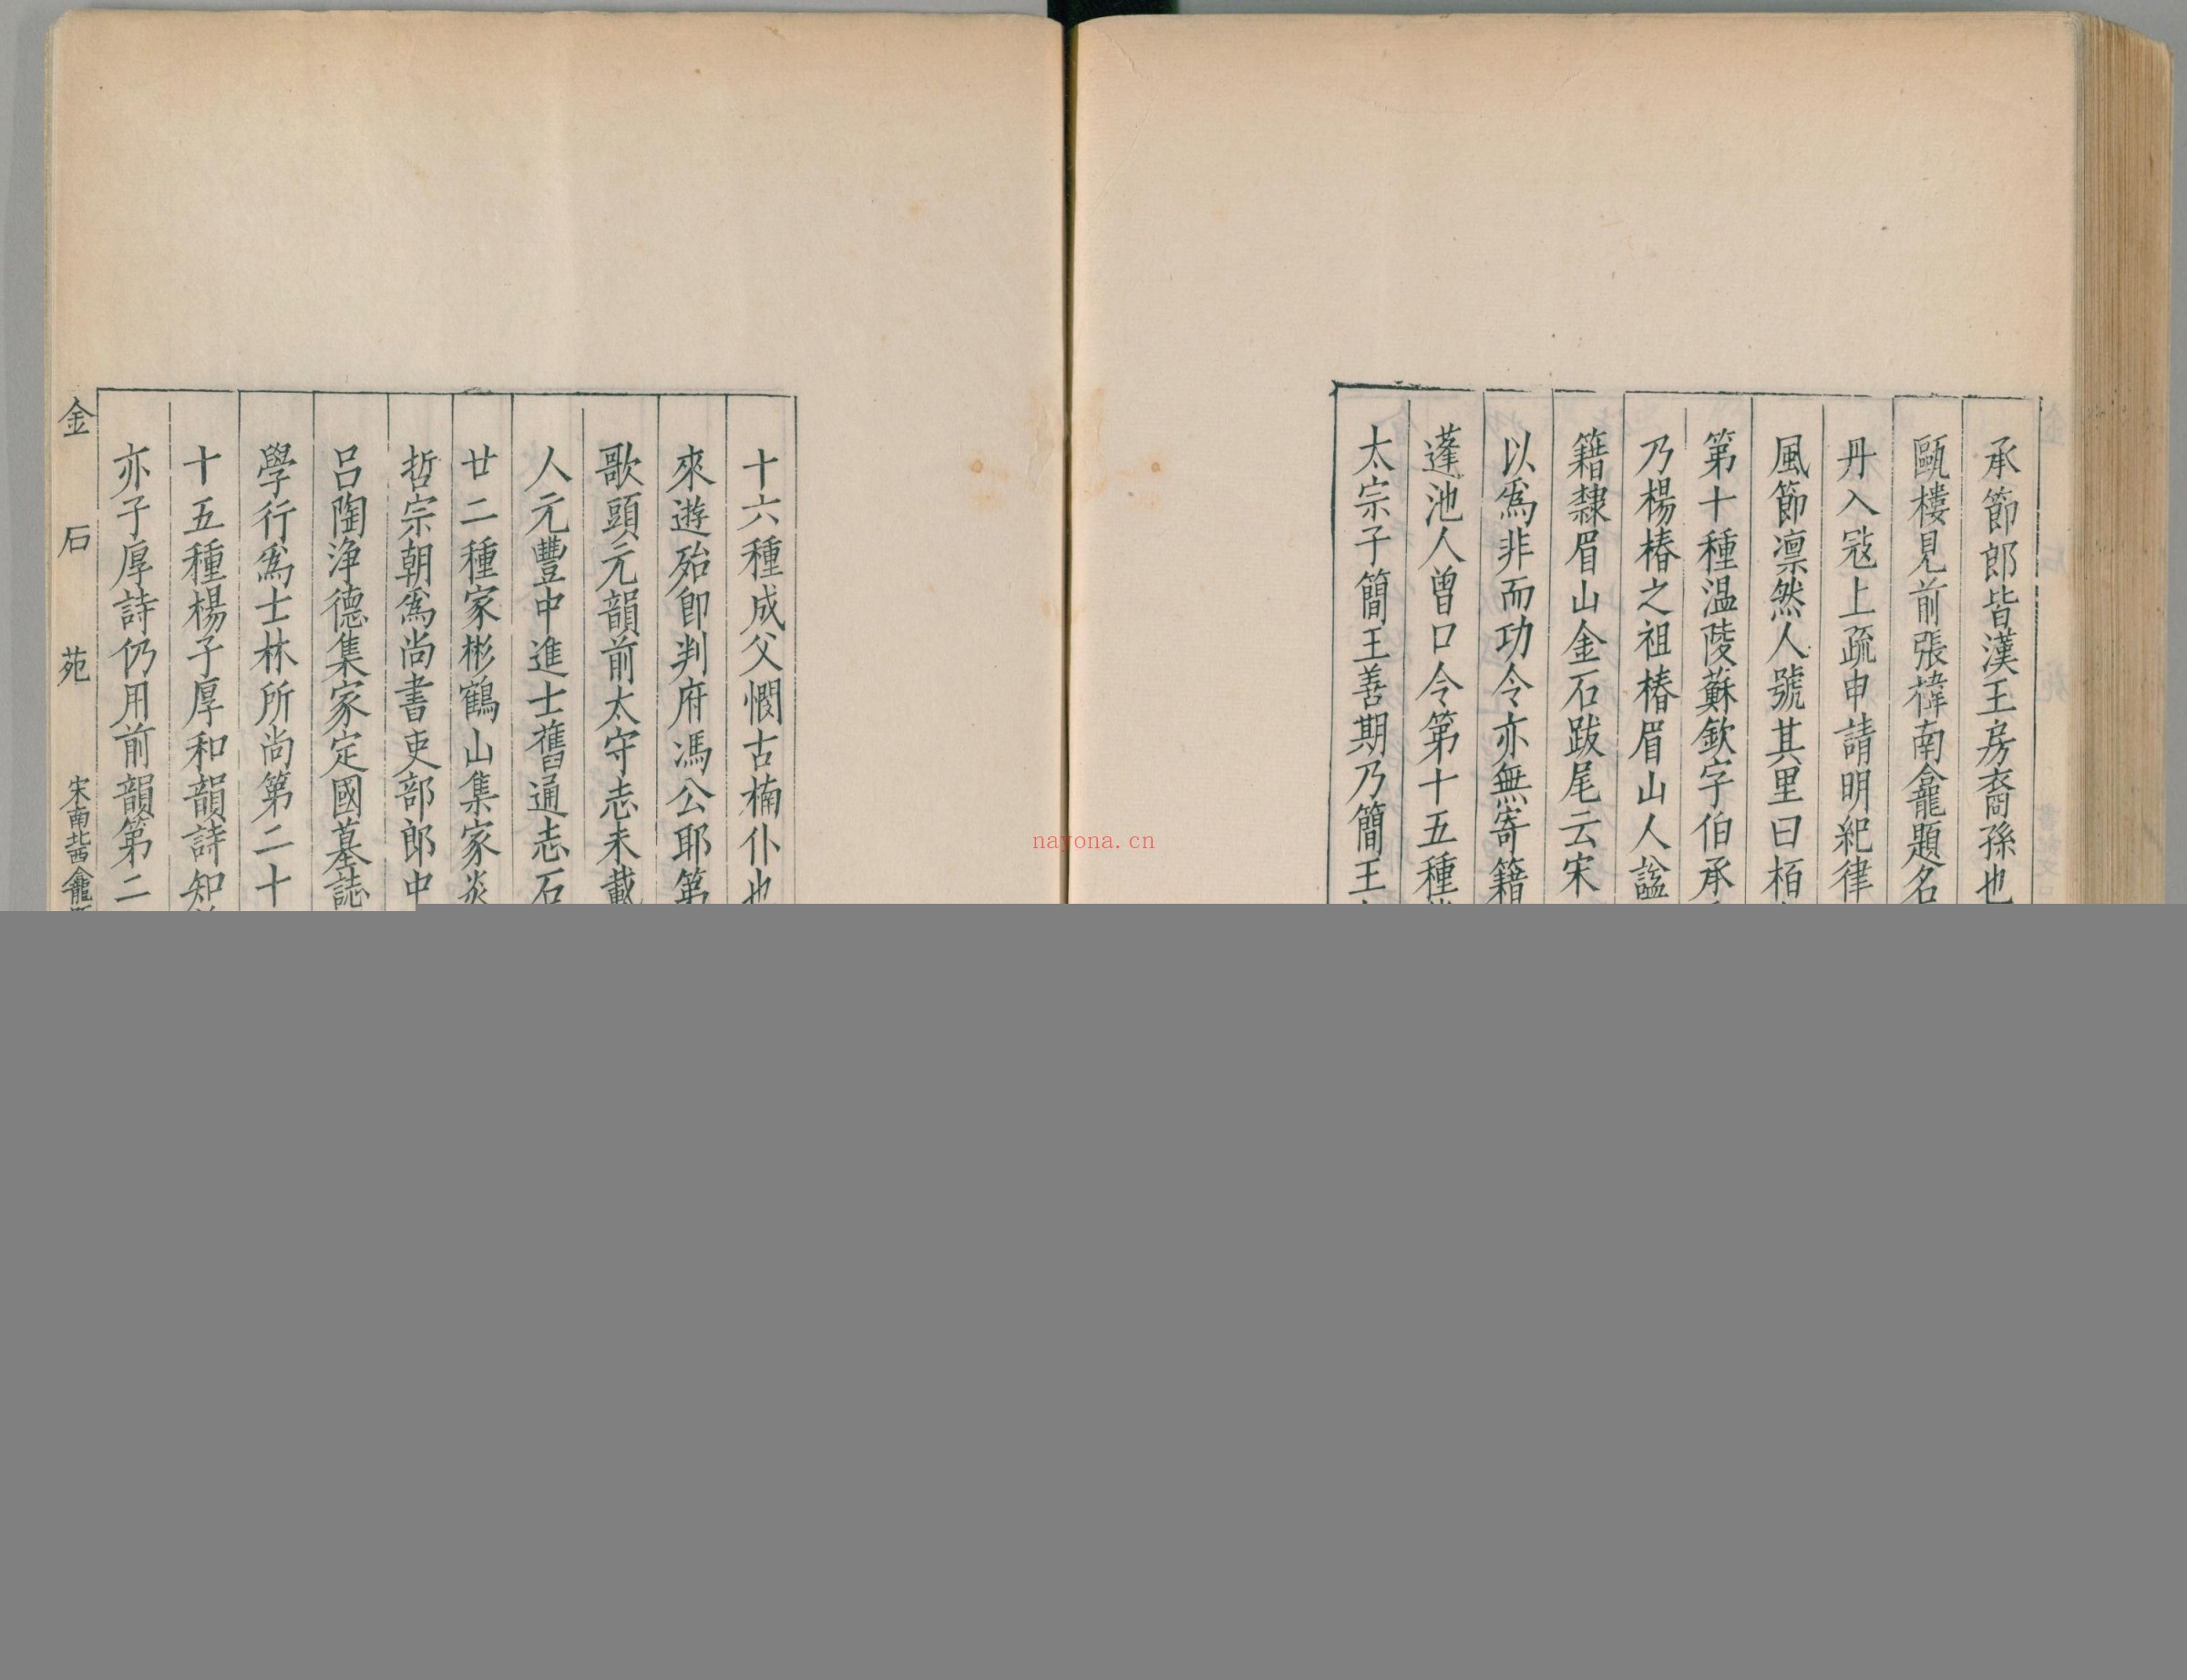 承節郎皆漢王房裔孫也
甌樓見前張禕南龕題名
丹入寇上疏申請明紀律
風節凛然人號其里曰栢
第十種温陵蘇欽字伯承
乃楊椿之祖椿眉山人諡
籍隸眉山金石跋尾云宋
以爲非而功令亦無寄籍
蓬池人曾口令第十五種
太宗子簡王善期乃簡王
十六種成父憫古楠仆也
來遊殆卽判府馮公耶第
歌頭元韻前太守志未載
人元豐中進士舊通志石
廿二種家彬鶴山集家炎
哲宗朝爲尚書吏部郎中
呂陶浄德集家定國墓誌
學行爲士林所尚第二十
十五種楊子厚和韻詩知
亦子厚詩仍用前韻第二
金石苑 宋南北西龕
nayona.cn